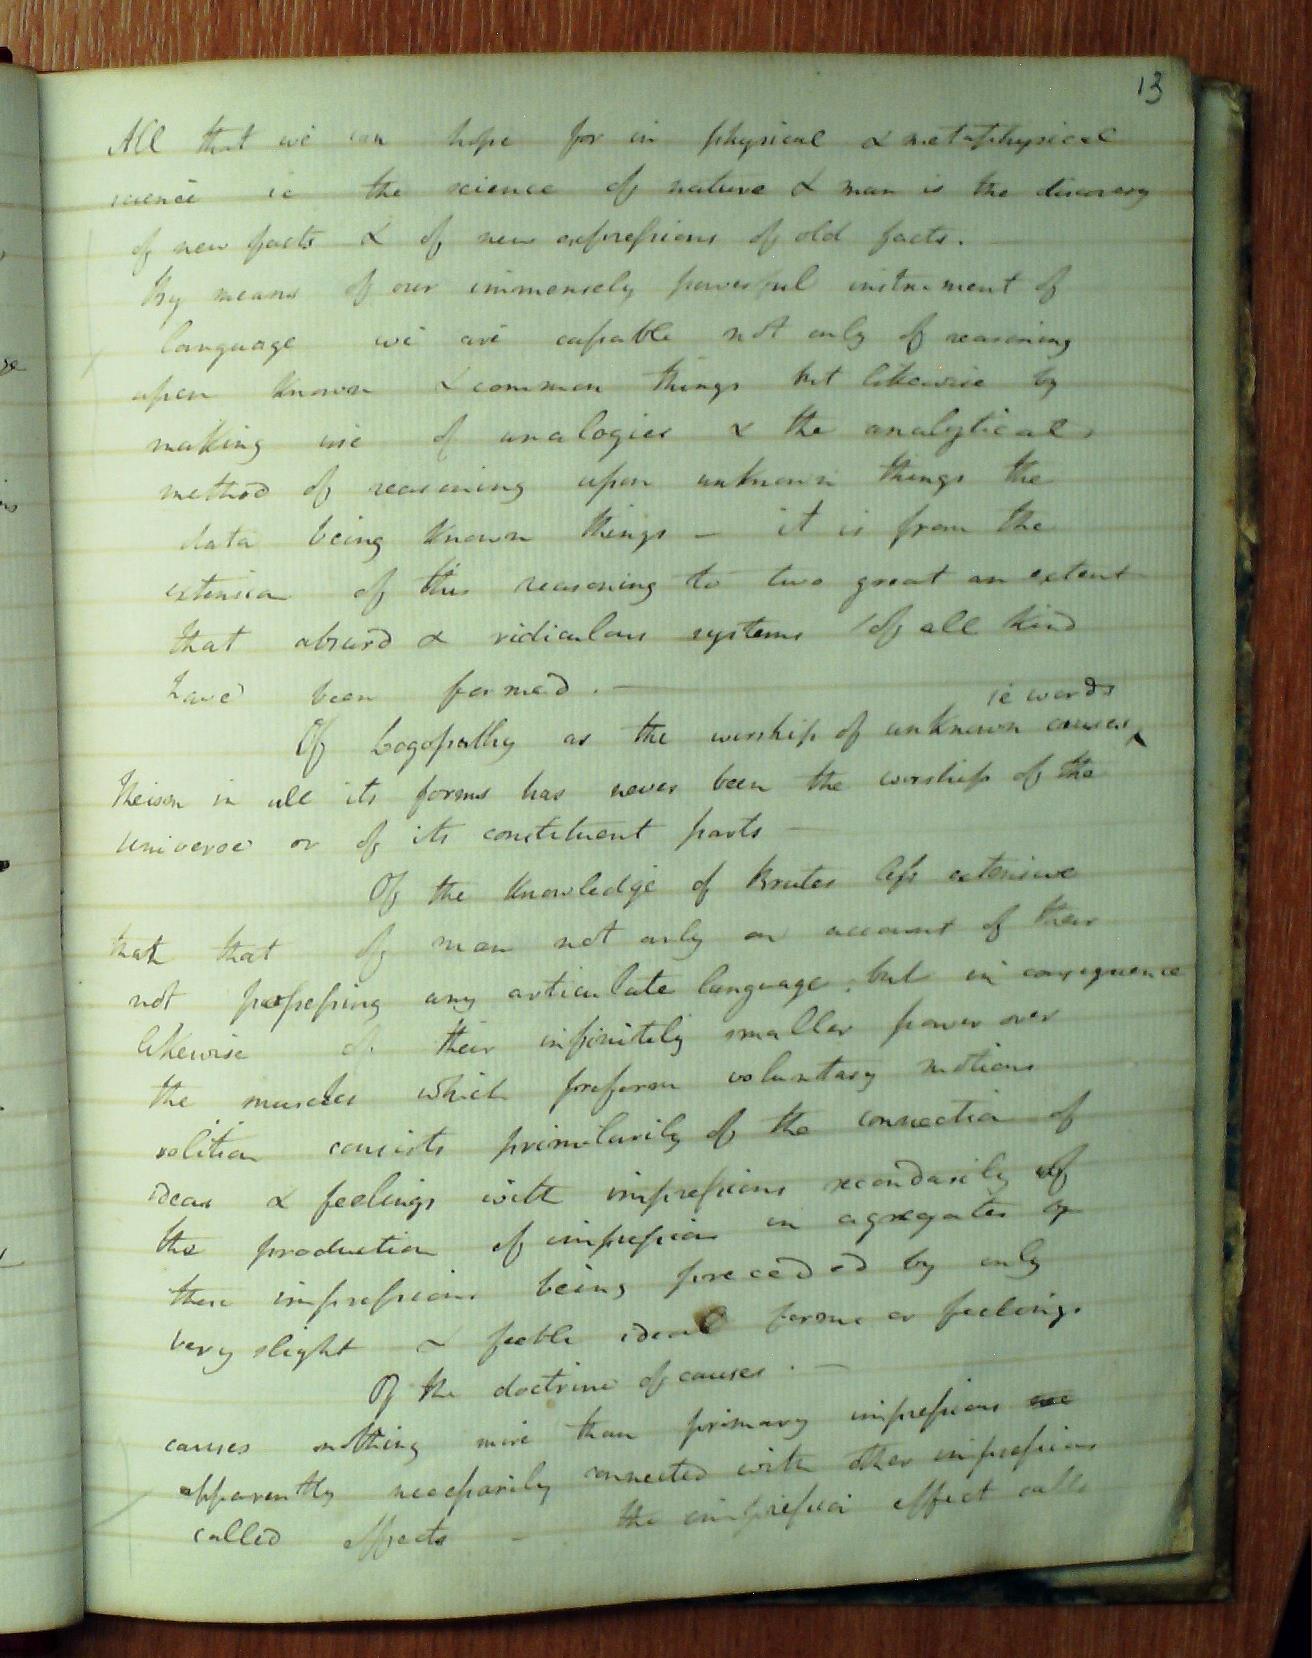 13
All that we can hope for in physical & metaphysical
science ie the science of nature & man is the discovery
of new facts & of new expressions of old facts.
By means of our immensely powerful instrument of
language we are capable not only of reasoning
upon known & common things but likewise by
making use of analogies & the analytical
method of reasoning upon unknown things the
data being known things – it is from the
extension of this reasoning to two great an extent
that absurd & ridiculous systems of all kind
have been formed. –
ie words
Of Logopathy as the worship of unknown causes
Theism in all its forms has never been the worship of the
universe or of its constituent parts –
Of the knowledge of Brutes less extensive
that that of man not only on account of their
not possessing any articulate language, but in consequence
likewise of their infinitely smaller power over
the muscles which preform voluntary motions
volition consists primilarily of the connection of
ideas & feelings with impressions secondarily of
the production of impression in agregates or
these impressions being preceded by only
very slight & feeble ideal forms or feelings
Of the doctrine of causes. –
causes nothing more than primary impressions
apparently necessarily connected with other impressions
called effects – the impression effect calls